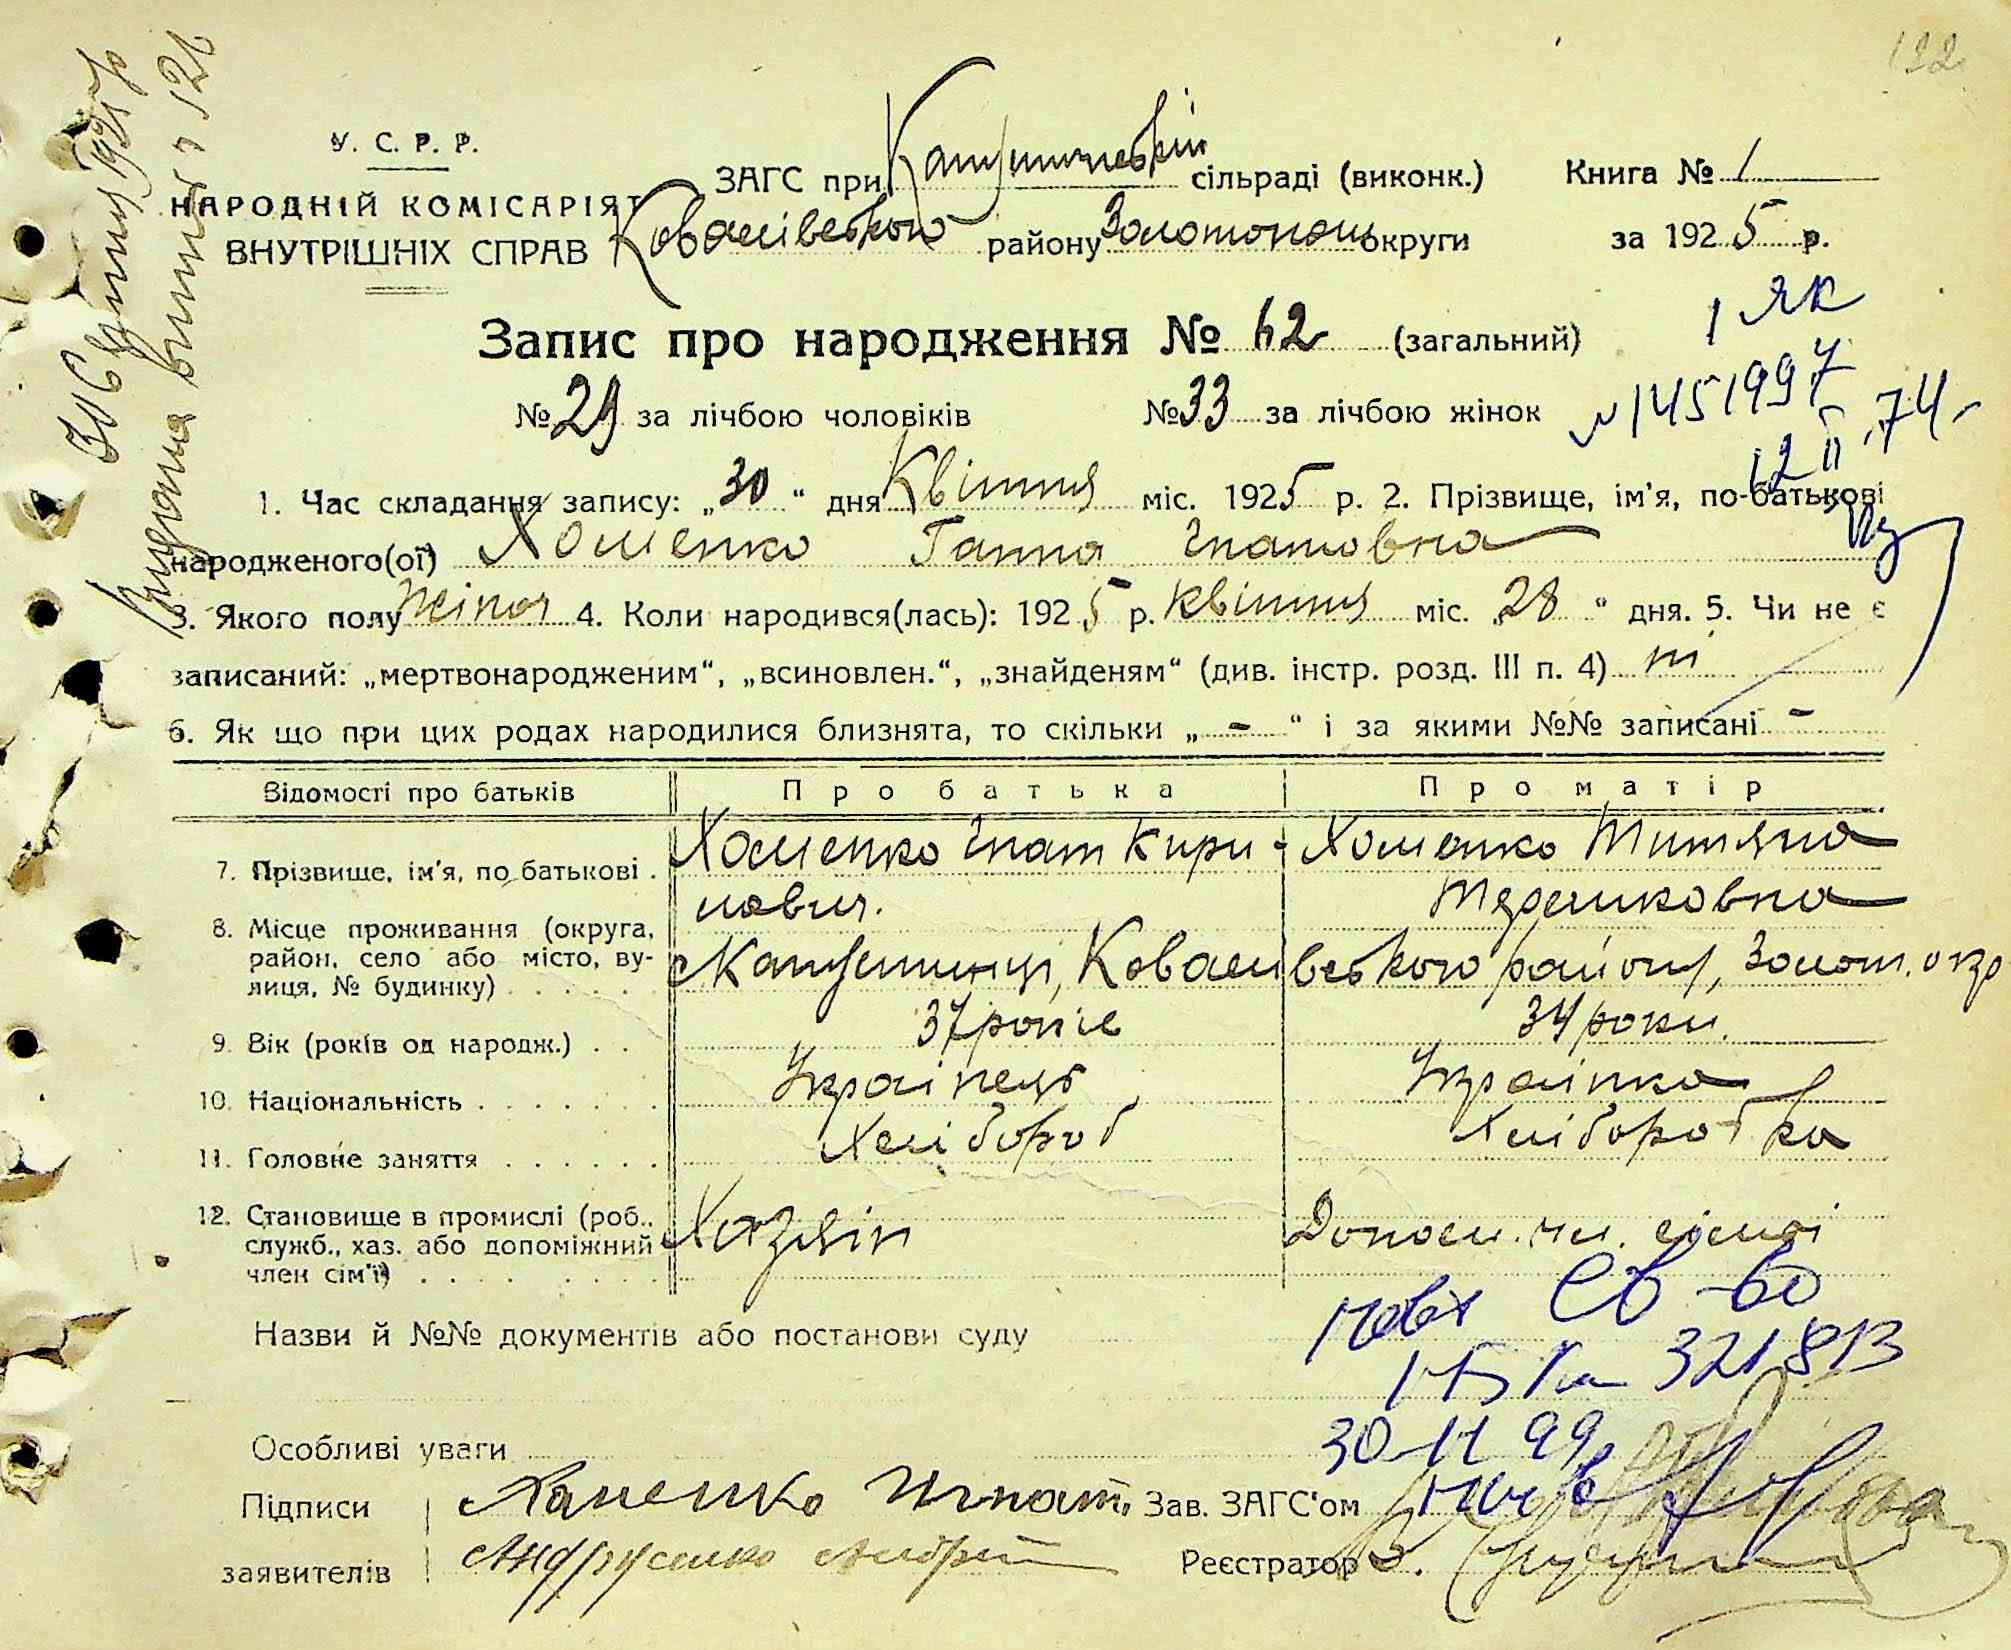 122
У. С. Р. Р.
НАРОДНІЙ КОМІСАРІЯТ
ВНУТРІШНІХ СПРАВ
ЗАГС при сільраді (виконк.)
Ковалівського району Золотонош округи
Книга № 1
за 1925 р.
Запис про народження № 62 (загальний)
№ 29 за лічбою чоловіків № 33 за лічбою жінок
1 ЯК
№ 1451997
12 II 74
1. Час складання запису: „30“ дня Квітня міс. 1925 р. 2. Прізвище, ім'я, по-батькові
народженого(ої) Хоменко Ганна Гнатовна
3. Якого полу жіноч 4. Коли народився(лась): 1925 р. Квітня міс. „28“ дня. 5. Чи не є
записаний: „мертвонародженим“, „всиновлен.“, „знайденям“ (див. інстр. розд. III п. 4) ні
6. Як що при цих родах народилися близнята, то скільки „-“ і за якими №№ записані -
Відомості про батьків Про батька Про матір
7. Прізвище, ім'я, по батькові . Хоменко Гнат Кири- Хоменко Титяна
лович. Терешковна
8. Місце проживання (округа,
район, село або місто, ву-
лиця, № будинку) . . . . . Ковалівського району, Золот. окр
9. Вік (років од народж.) . . 37 років 34 роки.
10. Національність . . . . . . . Українець Українка
11. Головне заняття . . . . . . Хлібороб Хліборобка
12. Становище в промислі (роб.,
служб., хаз. або допоміжний
член сім'ї) . . . . . . . Хазяїн Допом. чл. сімьї
Назви й №№ документів або постанови суду
321813
30-11 99
Особливі уваги
Підписи Хоменко Игнат. Зав. ЗАГС'ом
заявителів Андрусенко Андрей Реєстратор